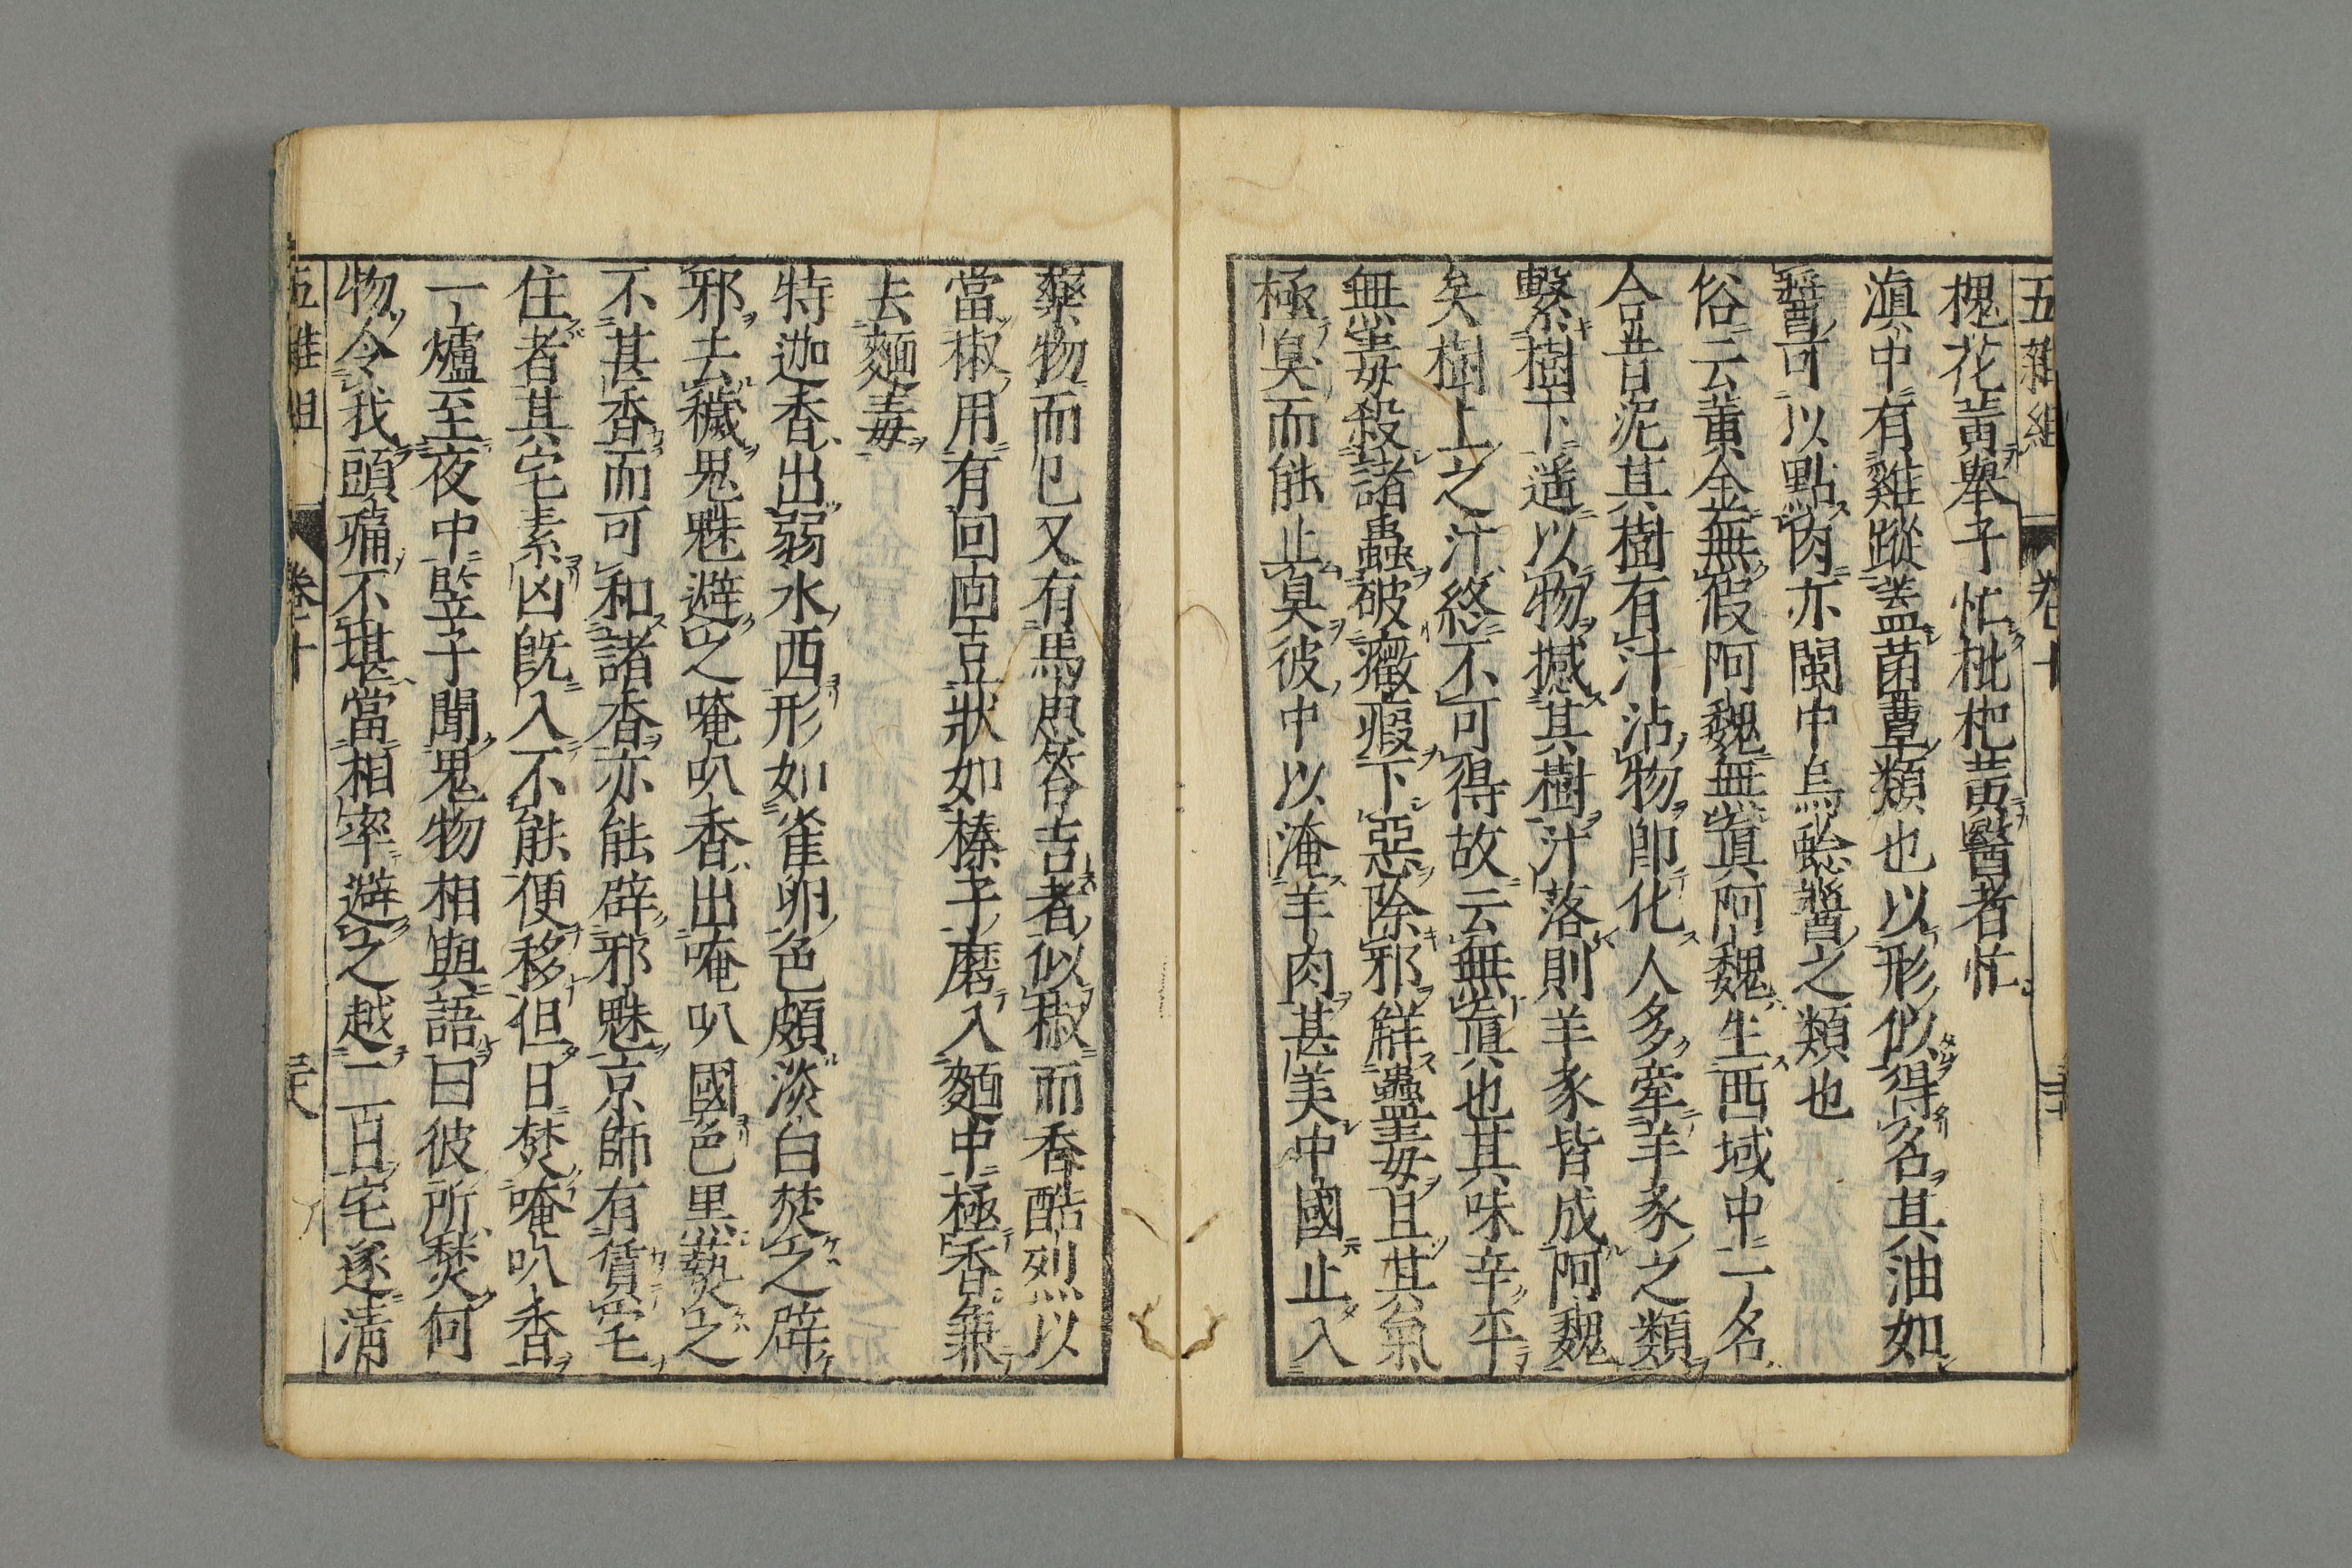 五雜組 卷十
槐花黃舉子忙枇杷黃醫者忙
滇中有雞蹤蓋菌蕈類也以形似得名其油如
醬可以點肉亦閩中烏䱙醬之類也
俗云黃金無假阿魏無眞阿魏生西域中一名
合昔泥其樹有汁沾物卽化人多牽羊豕之類
繫樹下遙以物撼其樹汁落則羊豕皆成阿魏
矣樹上之汁終不可得故云無眞也其味辛平
無毒殺諸蟲破癥瘕下惡除邪觧蠱毒且其氣
極臭而能止臭彼中以淹羊肉甚美中國止入
藥物而已又有馬思答吉者似椒而香酷烈以
當椒用有回回豆狀如榛子磨入麵中極香兼
去麵毒
特迦香出弱水西形如雀卵色頗淡白焚之辟
邪去穢鬼魅避之唵叭香出唵叭國色黑爇之
不甚香而可和諸香亦能辟邪魅京師有賃宅
住者其宅素凶旣入不能便移但日焚唵叭香
一爐至夜中竪子聞鬼物相與語曰彼所焚何
物令我頭痛不堪當相率避之越二百宅遂淸
五雜組 卷十